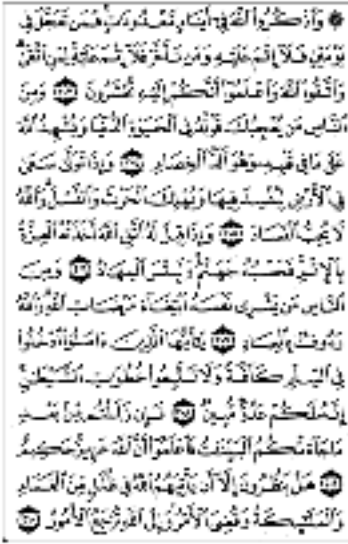 ۞ وَاذْكُرُوا اللَّهَ فِي أَيَّامٍ مَعْدُودَاتٍ فَمَنْ تَعَجَّلَ فِي
يَوْمَيْنِ فَلَا إِثْمَ عَلَيْهِ وَمَنْ تَأَخَّرَ فَلَا إِثْمَ عَلَيْهِ لِمَنِ اتَّقَىٰ
وَاتَّقُوا اللَّهَ وَاعْلَمُوا أَنَّكُمْ إِلَيْهِ تُحْشَرُونَ ٢٠٣ وَمِنَ
النَّاسِ مَنْ يُعْجِبُكَ قَوْلُهُ فِي الْحَيَاةِ الدُّنْيَا وَيُشْهِدُ اللَّهَ
عَلَىٰ مَا فِي قَلْبِهِ وَهُوَ أَلَدُّ الْخِصَامِ ٢٠٤ وَإِذَا تَوَلَّىٰ سَعَىٰ
فِي الْأَرْضِ لِيُفْسِدَ فِيهَا وَيُهْلِكَ الْحَرْثَ وَالنَّسْلَ وَاللَّهُ
لَا يُحِبُّ الْفَسَادَ ٢٠٥ وَإِذَا قِيلَ لَهُ اتَّقِ اللَّهَ أَخَذَتْهُ الْعِزَّةُ
بِالْإِثْمِ فَحَسْبُهُ جَهَنَّمُ وَلَبِئْسَ الْمِهَادُ ٢٠٦ وَمِنَ
النَّاسِ مَنْ يَشْرِي نَفْسَهُ ابْتِغَاءَ مَرْضَاتِ اللَّهِ وَاللَّهُ
رَءُوفٌ بِالْعِبَادِ ٢٠٧ يَا أَيُّهَا الَّذِينَ آمَنُوا ادْخُلُوا
فِي السِّلْمِ كَافَّةً وَلَا تَتَّبِعُوا خُطُوَاتِ الشَّيْطَانِ
إِنَّهُ لَكُمْ عَدُوٌّ مُبِينٌ ٢٠٨ فَإِنْ زَلَلْتُمْ مِنْ بَعْدِ
مَا جَاءَتْكُمُ الْبَيِّنَاتُ فَاعْلَمُوا أَنَّ اللَّهَ عَزِيزٌ حَكِيمٌ
٢٠٩ هَلْ يَنْظُرُونَ إِلَّا أَنْ يَأْتِيَهُمُ اللَّهُ فِي ظُلَلٍ مِنَ الْغَمَامِ
وَالْمَلَائِكَةُ وَقُضِيَ الْأَمْرُ وَإِلَى اللَّهِ تُرْجَعُ الْأُمُورُ ٢١٠